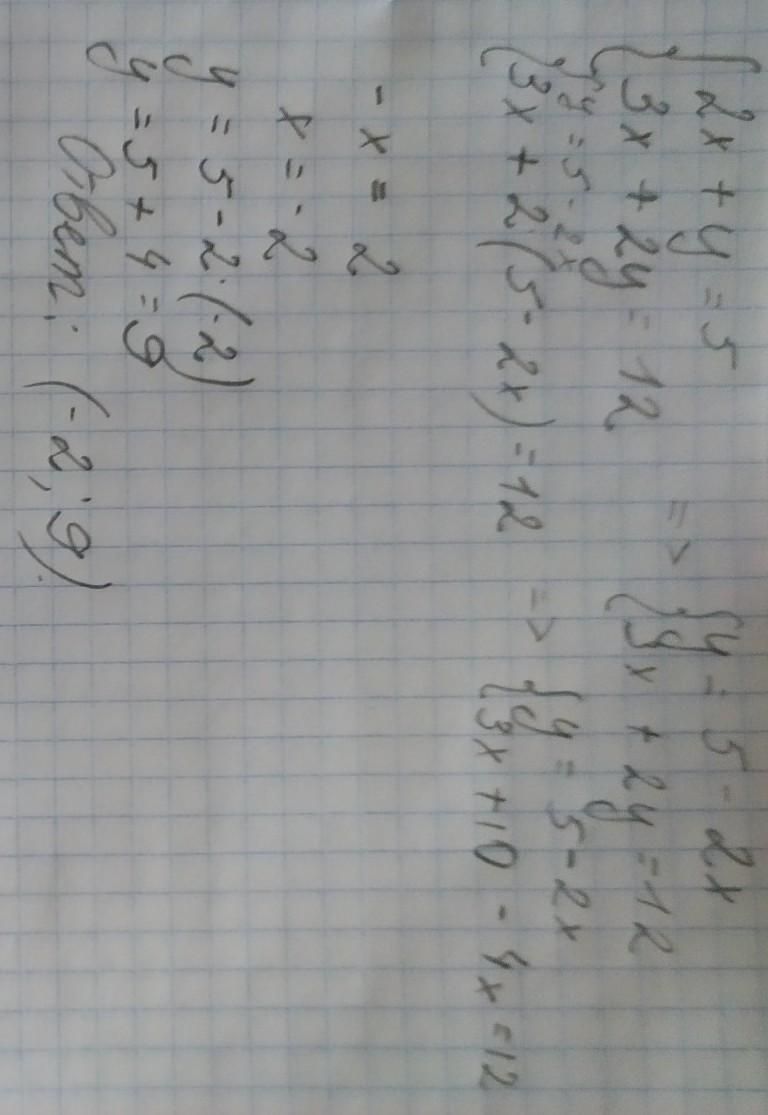 {2x + y = 5
{3x + 2y = 12 => {y = 5 - 2x
{3x + 2y = 12
{y = 5 - 2x
{3x + 2·(5 - 2x) = 12 => {y = 5 - 2x
{3x + 10 - 4x = 12
-x = 2
x = -2
y = 5 - 2·(-2)
y = 5 + 4 = 9
Ответ: (-2; 9).